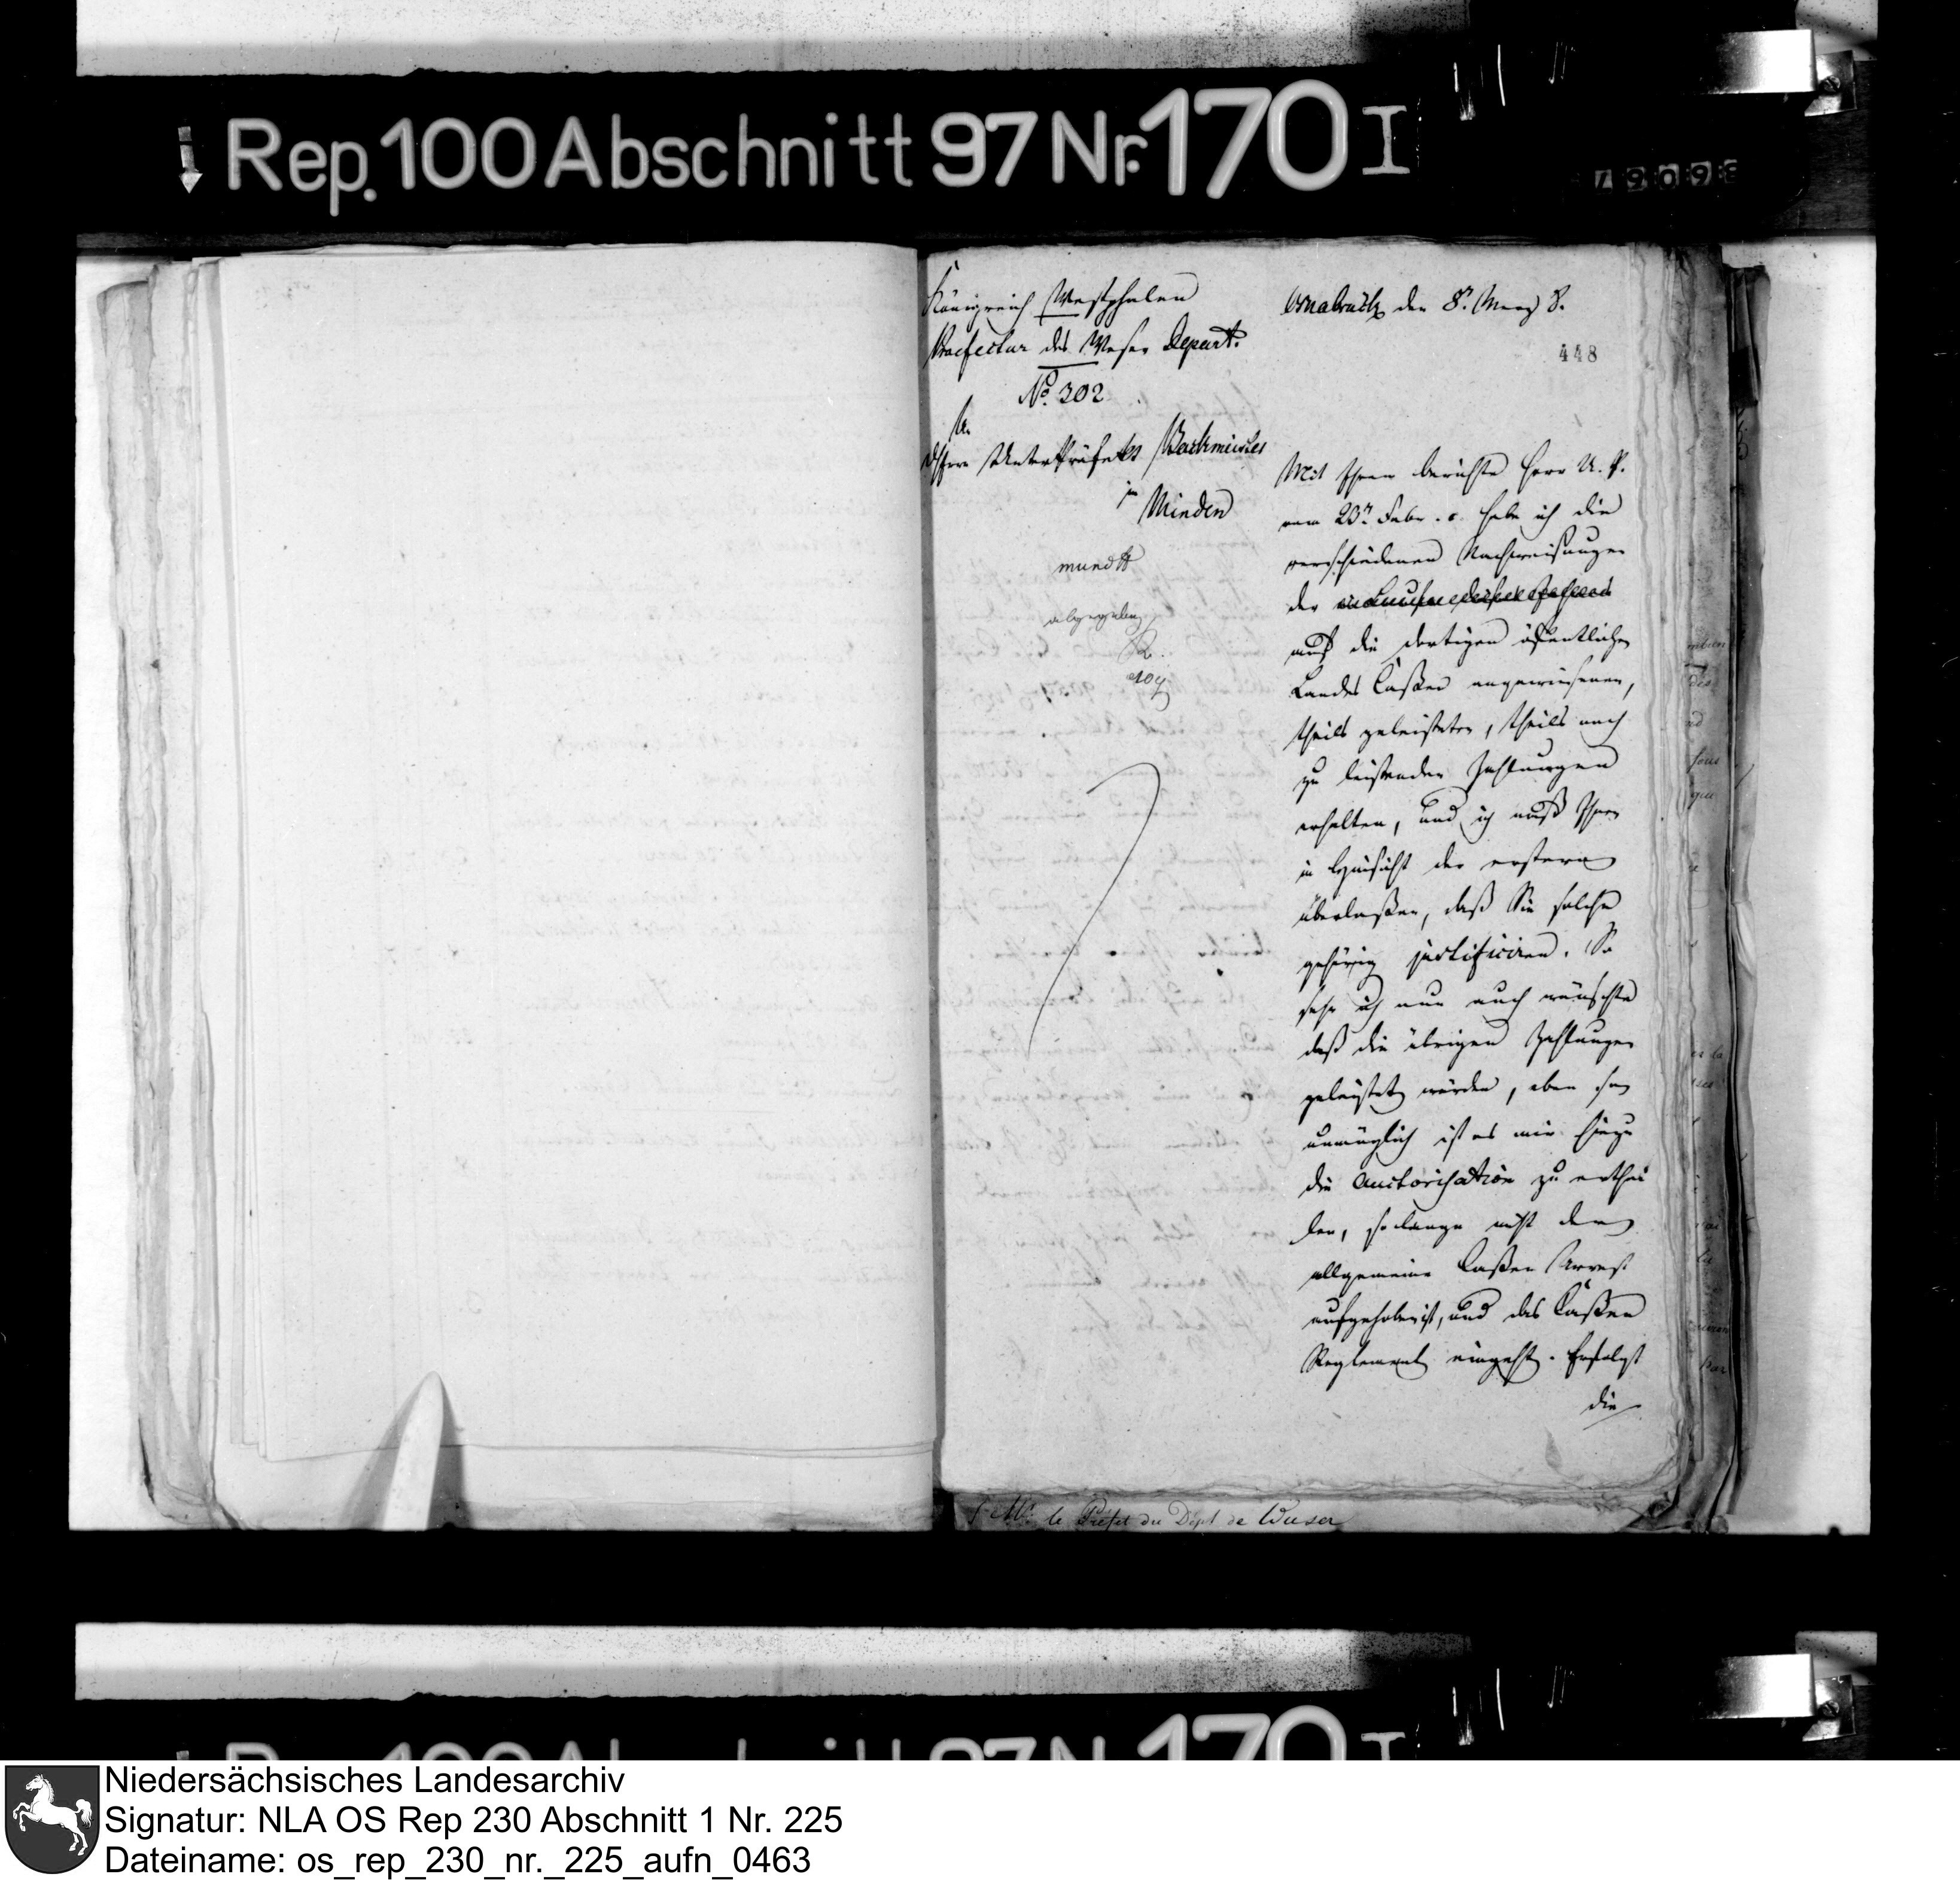 Rep. 100 Abschnitt 97 Nr. 170 I
Königreich Westphalen
Praefectur des Weser Depart.
No. 202
An
Herrn Unterpräfecten Backmeister
in
Minden
mundt
abgegeben
Osnabrück den 8n. Merz 8.
448
Mit Ihrem Berichte Herr U. P.
vom 23n. Febr. c. habe ich die
verschiedenen Nachweisungen
der
auf die dortigen öffentlichen
Landes Caßen angewiesenen,
theils geleisteten, theils noch
zu leistenden Zahlungen
erhalten, und ich muß Ihnen
in Hinsicht der erstern
überlaßen, daß Sie solche
gehörig justificiren. So
sehr ich nun auch wünschte
daß die übrigen Zahlungen
geleistet würden, eben so
unmöglich ist es mir hiezu
die Auctorisation zu erthei
len, so lange nicht der
allgemeine Caßen Arrest
aufgehoben ist, und das Caßen
Reglement eingeht. Erfolgt
die
Mr. le Préfet du Dépt. de Weser
Rep. 100 Abschnitt 97 N 170 I
Niedersächsisches Landesarchiv
Signatur: NLA OS Rep 230 Abschnitt 1 Nr. 225
Dateiname: os_rep_230_nr._225_aufn_0463